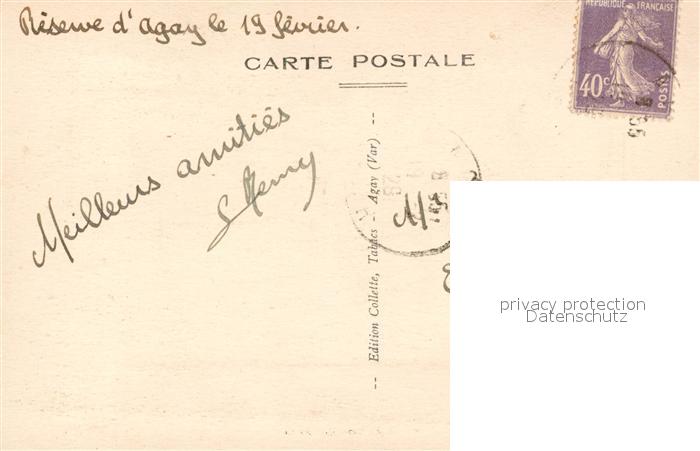 Réserve d'Agay le 19 février.
CARTE POSTALE
RÉPUBLIQUE FRANÇAISE
40c
POSTES
Meilleurs amitiés
-- Edition Collette, Tabacs - Agay (Var) --
privacy protection
Datenschutz